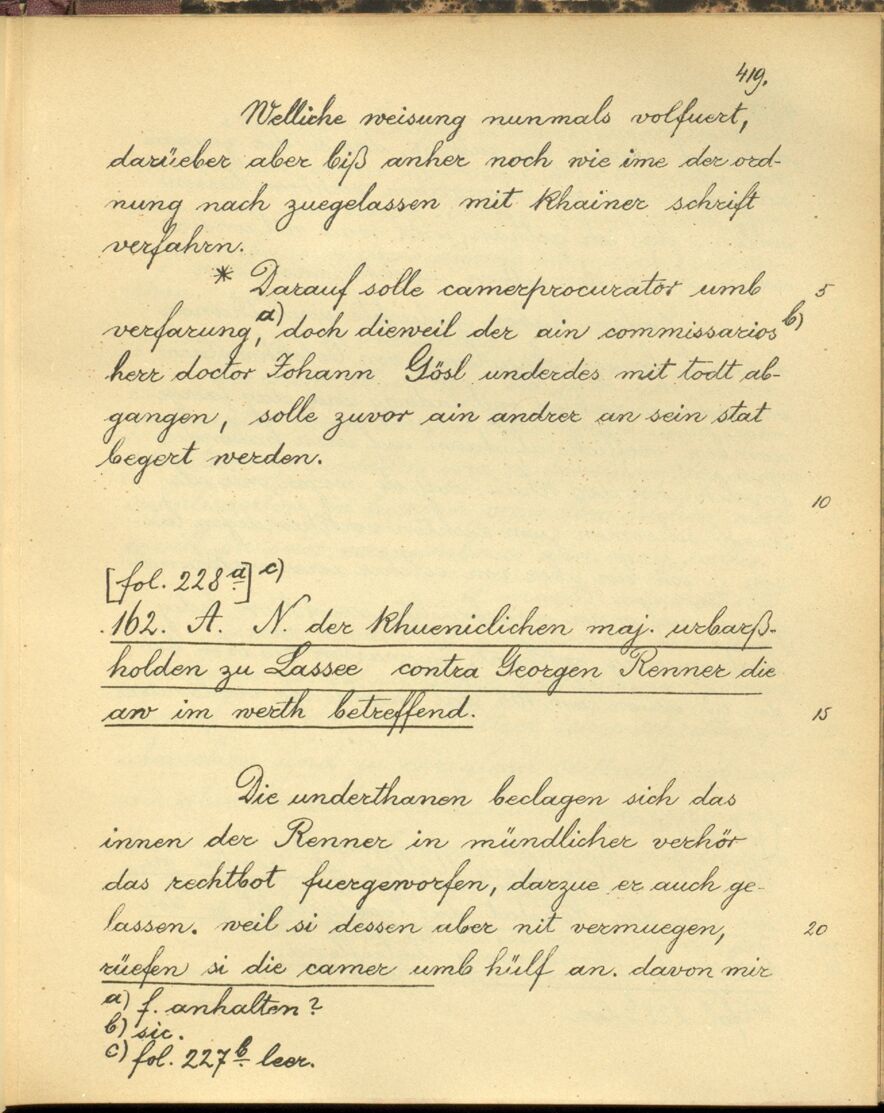 419.
Welliche weisung nunmals volfuert,
darüeber aber biß anher noch wie ime der ord-
nung nach zuegelassen mit khainer schrift
verfahrn.
* Darauf solle camerprocurator umb 5
verfarung, a) doch dieweil der ain commissarios b)
herr doctor Johann Gösl underdes mit todt ab-
gangen, solle zuvor ain andrer an sein stat
begert werden.
10
[fol. 228 a] c)
162. A. N. der khueniclichen maj. urbarß-
holden zu Lassee contra Georgen Renner die
aw im werth betreffend. 15
Die underthanen beclagen sich das
innen der Renner in mündlicher verhör
das rechtbot fuergeworfen, darzue er auch ge-
lassen. weil si dessen aber nit vermuegen, 20
rüefen si die camer umb hülf an. davon mir
a) f. anhalten?
b) sic.
c) fol. 227 b leer.